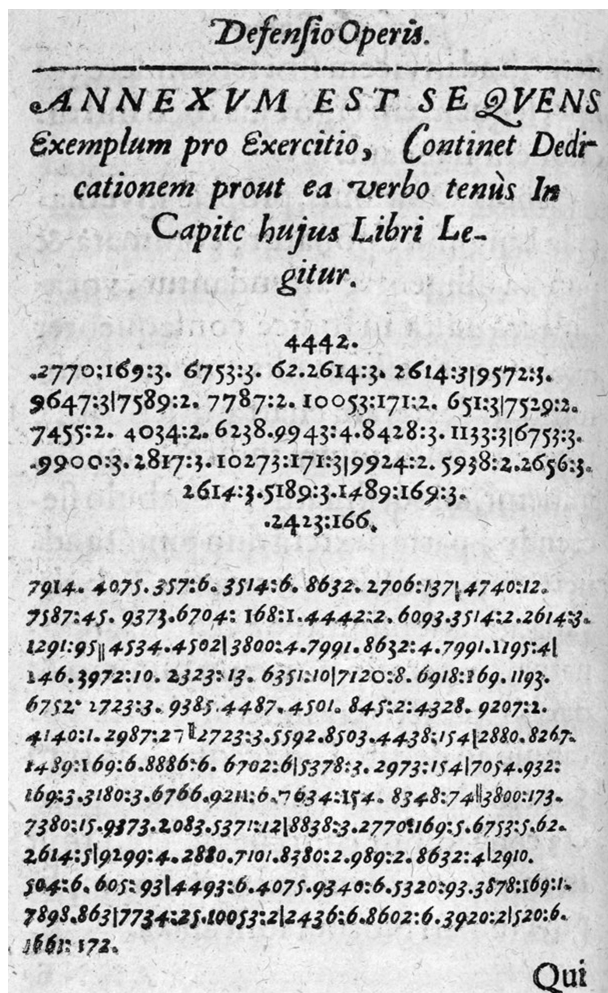 Defensio Operis.
ANNEXVM EST SEQVENS
Exemplum pro Exercitio, Continet Dedi-
cationem prout ea verbo tenùs In
Capite hujus Libri Le-
gitur.
4442.
.2770:169:3. 6753:3. 62.2614:3. 2614:3|9572:3.
9647:3|7589:2. 7787:2. 10053:171:2. 651:3|7529:2.
7455:2. 4034:2. 6238.9943:4.8428:3. 1133:3|6753:3.
.9900:3.2817:3.10273:171:3|9924:2. 5938:2.2656:3.
2614:3.5189:3.1489:169:3.
.2423:166.
7914. 4075.357:6. 3514:6. 8632. 2706:137|4740:12.
7587:45. 9373.6704: 168:1.4442:2. 6093.3514:2.2614:3.
1291:95||4534.4502|3800:4.7991.8632:4.7991.1195:4|
146.3972:10. 2323:13. 6351:10|7120:8. 6918:169. 1193.
6752. 2723:3. 9385.4487.4501. 845:2:4328. 9207:2.
4140:1. 2987:27||2723:3.5592.8503.4438:154|2880.8267.
1489:169:6.8886:6. 6702:6|5378:3. 2973:154|7054.932:
169:3.3180:3.6766.9211:6.7634:154. 8348:74||3800:173.
7380:15.9373.2083.5371:12|8838:3.2770:169:5.6753:5.62.
2614:5|9299:4.2880.7101.8380:2.989:2.8632:4|2910.
504:6. 605:93|4493:6.4075.9340:6.5320:93.3878:169:1.
7898.863|7734:25.10053:2|2436:6.8602:6.3920:2|520:6.
1661: 172.
Qui